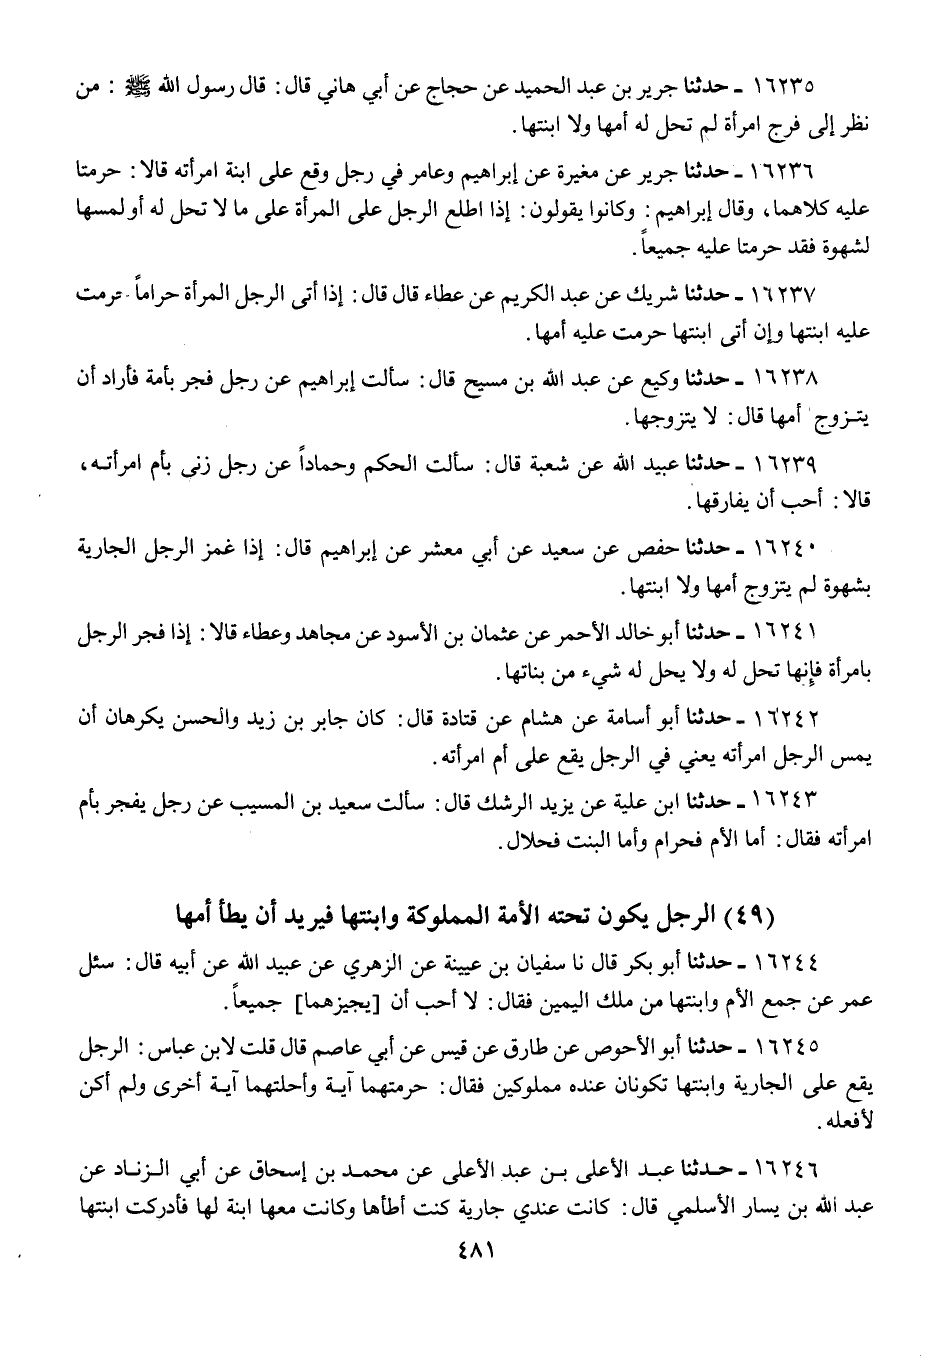 ١٦٢٣٥ ـ حدثنا جرير بن عبد الحميد عن حجاج عن أبي هاني قال: قال رسول الله ﷺ : من
نظر إلى فرج امرأة لم تحل له أمها ولا ابنتها.
١٦٢٣٦ ـ حدثنا جرير عن مغيرة عن إبراهيم وعامر في رجل وقع على ابنة امرأته قالا: حرمتا
عليه كلاهما، وقال إبراهيم: وكانوا يقولون: إذا اطلع الرجل على المرأة على ما لا تحل له أو لمسها
لشهوة فقد حرمتا عليه جميعاً.
١٦٢٣٧ ـ حدثنا شريك عن عبد الكريم عن عطاء قال قال: إذا أتى الرجل المرأة حراماً حرمت
عليه ابنتها وإن أتى ابنتها حرمت عليه أمها.
١٦٢٣٨ ـ حدثنا وكيع عن عبد الله بن مسيح قال: سألت إبراهيم عن رجل فجر بأمة فأراد أن
يتـزوج أمها قال: لا يتزوجها.
١٦٢٣٩ ـ حدثنا عبيد الله عن شعبة قال: سألت الحكم وحماداً عن رجل زنى بأم امرأتـه،
قالا: أحب أن يفارقها.
١٦٢٤٠ ـ حدثنا حفص عن سعيد عن أبي معشر عن إبراهيم قال: إذا غمز الرجل الجارية
بشهوة لم يتزوج أمها ولا ابنتها.
١٦٢٤١ ـ حدثنا أبو خالد الأحمر عن عثمان بن الأسود عن مجاهد وعطاء قالا: إذا فجر الرجل
بامرأة فإنها تحل له ولا يحل له شيء من بناتها.
١٦٢٤٢ ـ حدثنا أبو أسامة عن هشام عن قتادة قال: كان جابر بن زيد والحسن يكرهان أن
يمس الرجل امرأته يعني في الرجل يقع على أم امرأته.
١٦٢٤٣ ـ حدثنا ابن علية عن يزيد الرشك قال: سألت سعيد بن المسيب عن رجل يفجر بأم
امرأته فقال: أما الأم فحرام وأما البنت فحلال.
(٤٩) الرجل يكون تحته الأمة المملوكة وابنتها فيريد أن يطأ أمها
١٦٢٤٤ ـ حدثنا أبو بكر قال نا سفيان بن عيينة عن الزهري عن عبيد الله عن أبيه قال: سئل
عمر عن جمع الأم وابنتها من ملك اليمين فقال: لا أحب أن [يجيزهما] جميعاً.
١٦٢٤٥ ـ حدثنا أبو الأحوص عن طارق عن قيس عن أبي عاصم قال قلت لابن عباس: الرجل
يقع على الجارية وابنتها تكونان عنده مملوكين فقال: حرمتهما آيـة وأحلتهما آيـة أخرى ولم أكن
لأفعله.
١٦٢٤٦ ـ حـدثنا عبـد الأعلى بـن عبد الأعلى عن محمـد بن إسحاق عن أبي الـزنـاد عن
عبد الله بن يسار الأسلمي قال: كانت عندي جارية كنت أطأها وكانت معها ابنة لها فأدركت ابنتها
٤٨١